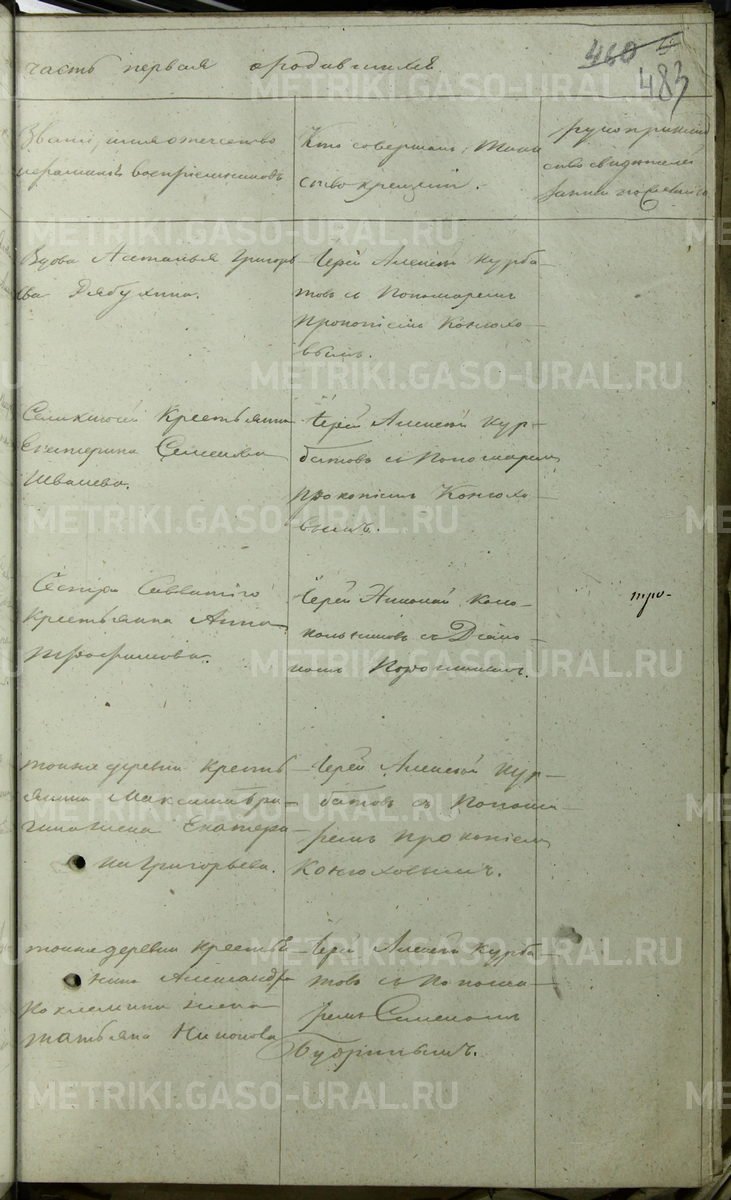 часть первая о родившихся
460
483
Званiе, имя отчество
и фамилiя воспрiемниковъ
Кто совершалъ таин
ство крещенiя.
рукоприклад
ство свидѣтелей
записи по желанiю
Вдова Астафья Григорь
ева Рябухина.
Iерей Алексѣй Курба
товъ съ Пономаремъ
Прокопiемъ Конюхо
вымъ.
Крестьянка
Екатерина Семенова
Ивачева.
Iерей Алексѣй Кур
батовъ съ Пономаремъ
Прокопiемъ Конюхо
вымъ.
Савватiя
крестьянка Анна
Трофимова.
Iерей Николай Коло
кольниковъ съ Дiако
номъ
три-
тоя же деревни кресть
янина Максима
жена Екатери
на Григорьева.
Iерей Алексѣй Кур
батовъ съ Понома
ремъ Прокопiемъ
Конюховымъ.
тоя же деревни кресть
янина Александра
жена
Татьяна Никонова
Iерей Алексѣй Курба
товъ съ Понома
ремъ Семеномъ
Бубринымъ.
METRIKI.GASO-URAL.RU